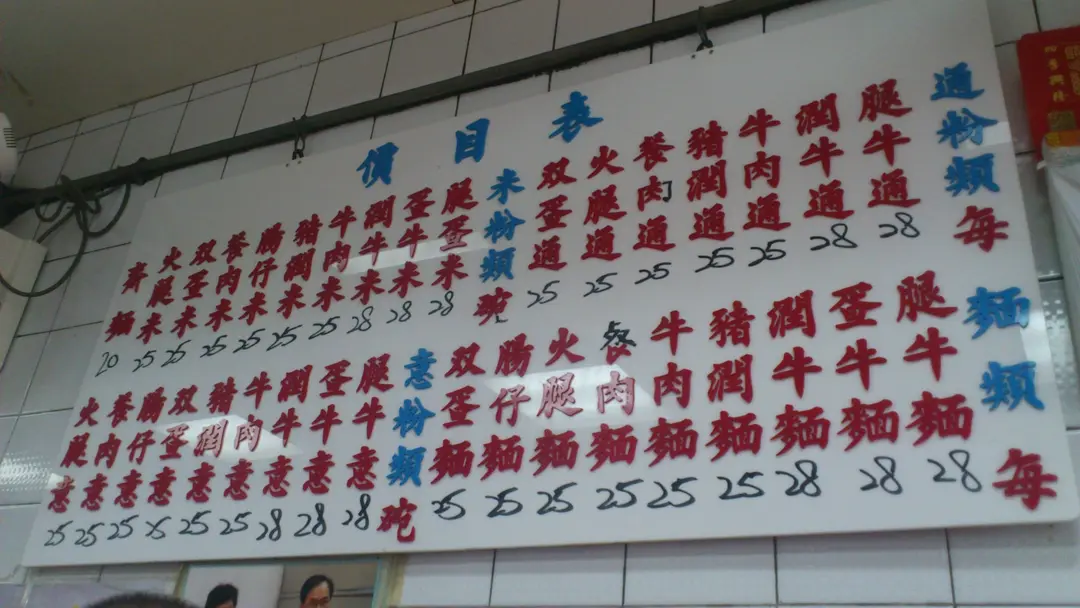 價目表
通粉類每
腿牛通28
潤牛通28
牛肉通25
豬潤通25
餐肉通25
火腿通25
双蛋通25
米粉類碗
腿蛋米28
蛋牛米28
潤牛米28
牛肉米25
豬潤米25
腸仔米25
餐肉米25
双蛋米25
火腿米25
齊麵20
麵類每
腿牛麵28
蛋牛麵28
潤牛麵28
豬潤麵25
牛肉麵25
餐肉麵25
火腿麵25
腸仔麵25
双蛋麵25
意粉類碗
腿牛意28
蛋牛意28
潤牛意28
牛肉意25
豬潤意25
双蛋意25
腸仔意25
餐肉意25
火腿意25